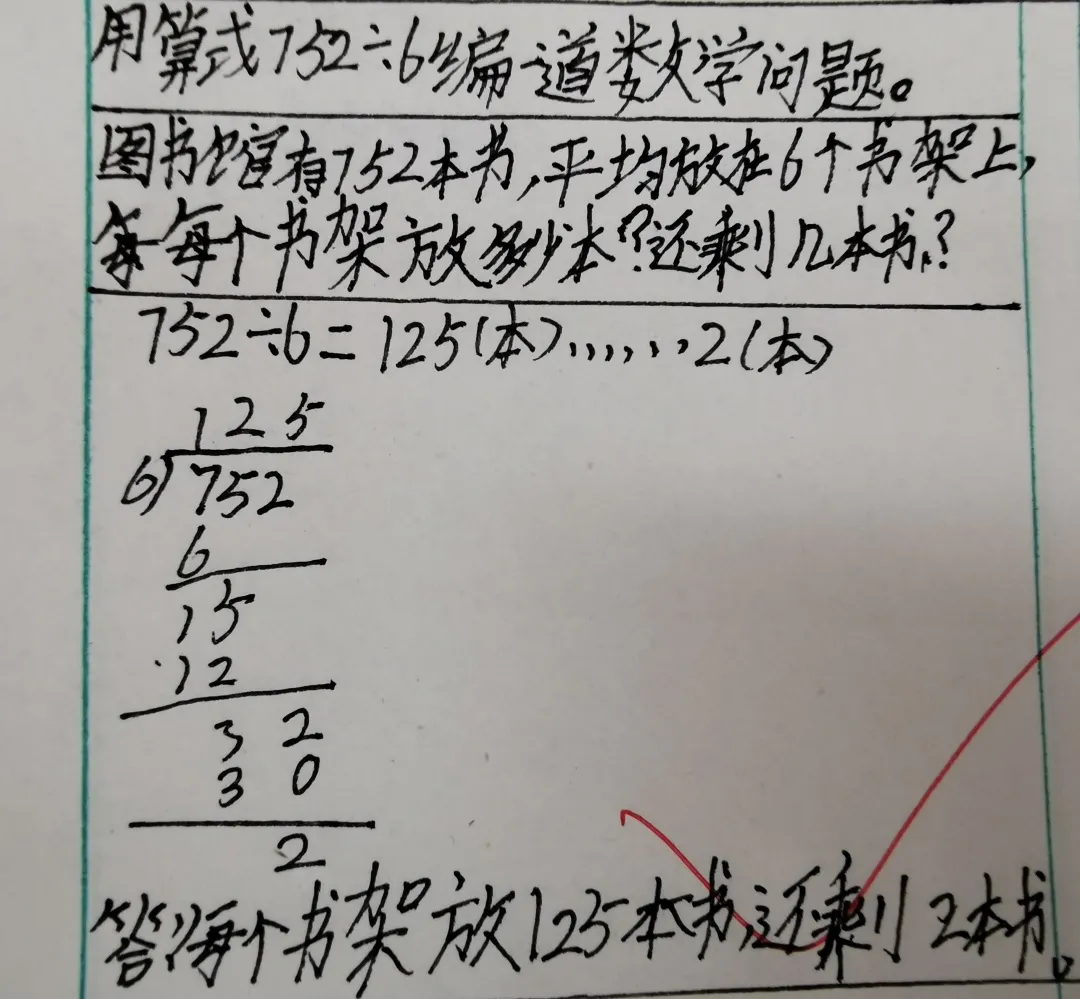 用算式752÷6编一道数学问题。
图书馆有752本书,平均放在6个书架上,
每个书架放多少本?还剩几本书?
752÷6=125(本)......2(本)
125
6)752
6
15
12
32
30
2
答:每个书架放125本书,还剩2本书。